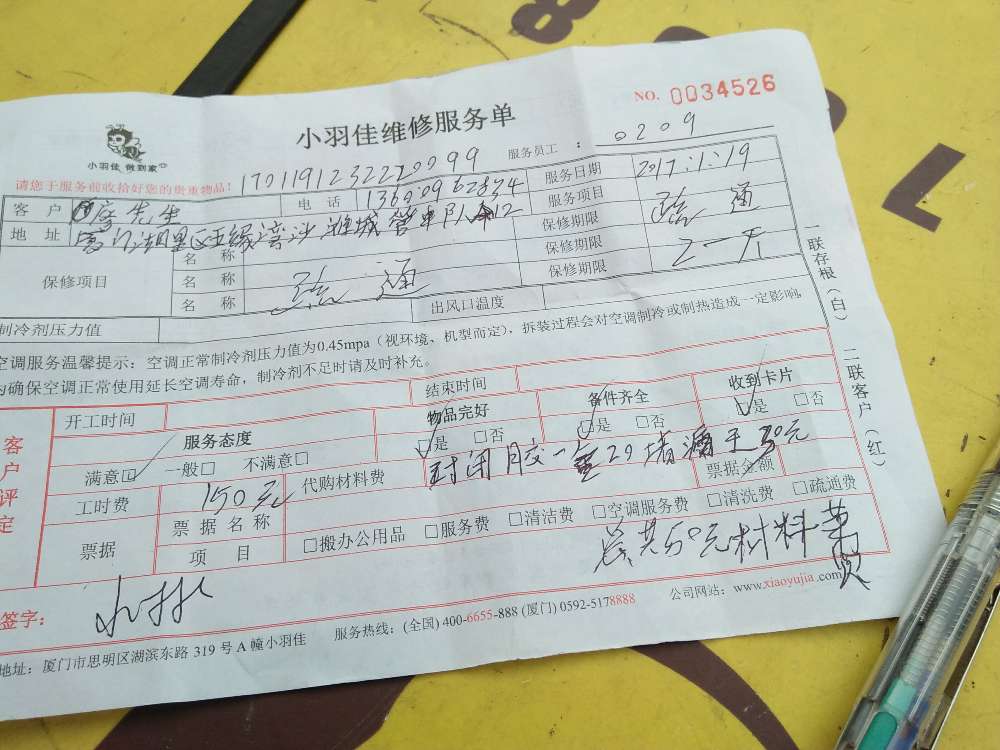 NO. 0034526
小羽佳维修服务单
小羽佳 做到家
服务员工 : 0209
请您于服务前收拾好您的贵重物品!
客 户 先生 电 话 服务日期 2017.1.19
地 址 服务项目 疏 通
保修项目 名 称 保修期限
名 称 疏 通 保修期限 天
名 称 出风口温度 保修期限
制冷剂压力值
空调服务温馨提示: 空调正常制冷剂压力值为0.45mpa (视环境、机型而定)、拆装过程会对空调制冷或制热造成一定影响,
为确保空调正常使用延长空调寿命,制冷剂不足时请及时补充。
一联存根(白) 二联客户(红)
客户评定
开工时间 结束时间
服务态度 物品完好 备件齐全 收到卡片
满意□ 一般□ 不满意□ □是 □否 □是 □否 □是 □否
工时费 150元 代购材料费 封闭胶 堵漏 30元
票据 票据名称 票据金额
项 目 □搬办公用品 □服务费 □清洁费 □空调服务费 □清洗费 □疏通费
总共50元材料费
签字:
公司网站: www.xiaoyujia.com
服务热线: (全国) 400-6655-888 (厦门) 0592-5178888
地址: 厦门市思明区湖滨东路 319 号 A 幢小羽佳